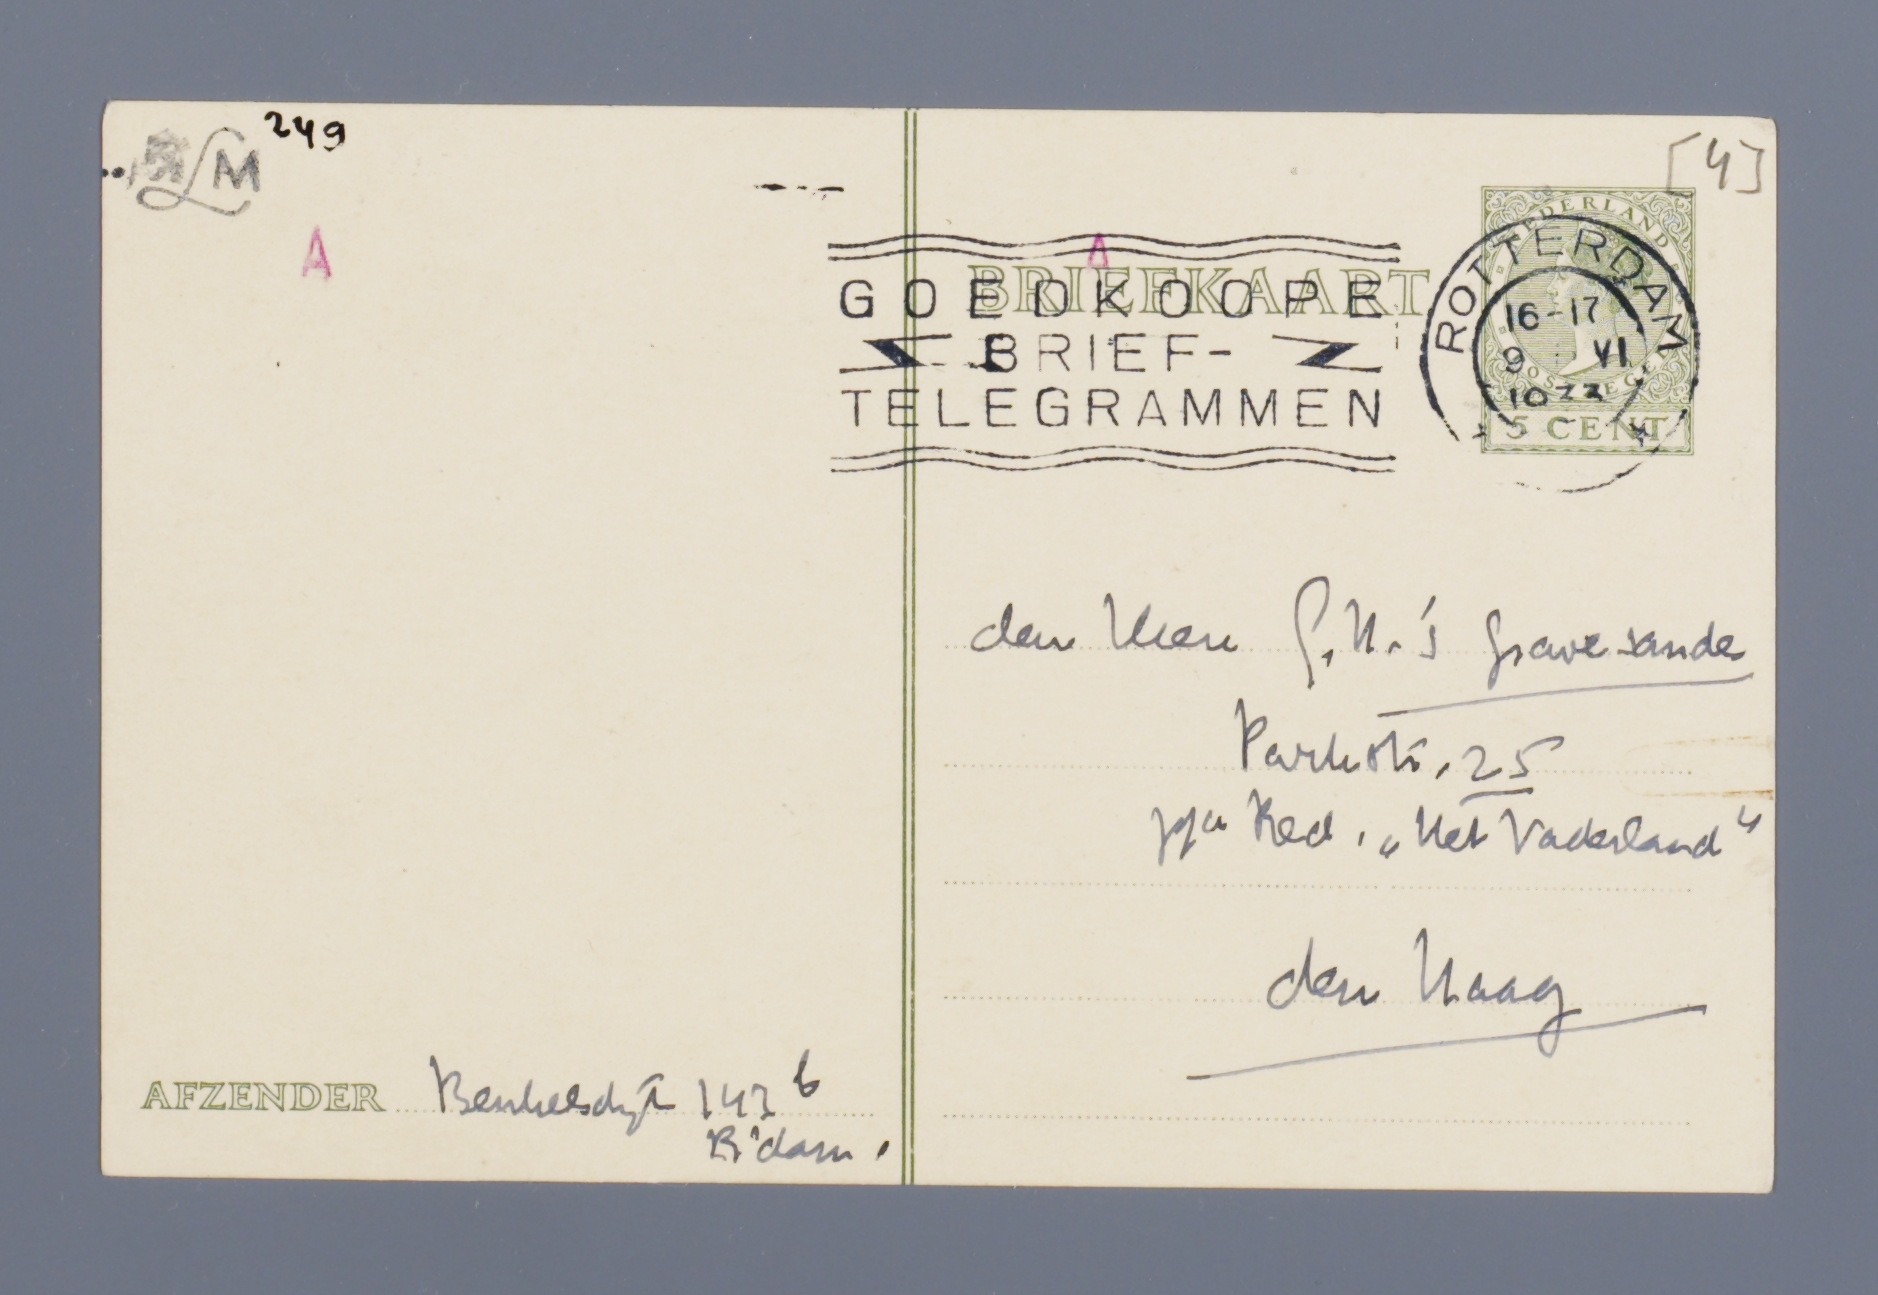 LM 249
[4]
A
A
BRIEFKAART
GOEDKOOPE
BRIEF-
TELEGRAMMEN
NEDERLAND
ROTTERDAM
16-17
9 VI
5 CENT
den Heer G.H. 's Gravesande
Parkstr. 25
p/a Red. „Het Vaderland"
den Haag
AFZENDER Beukelsdijk 143 b
R'dam.